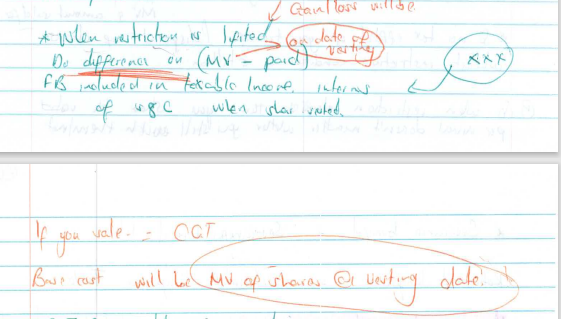 Gain/loss will be
* When restriction is lifted
on date of vesting
Do difference on (MV - paid)
xxx
FB included in taxable Income. interms
of wgc when shar vested.
If you sale. = CGT
Base cost will be MV of shares @ vesting date